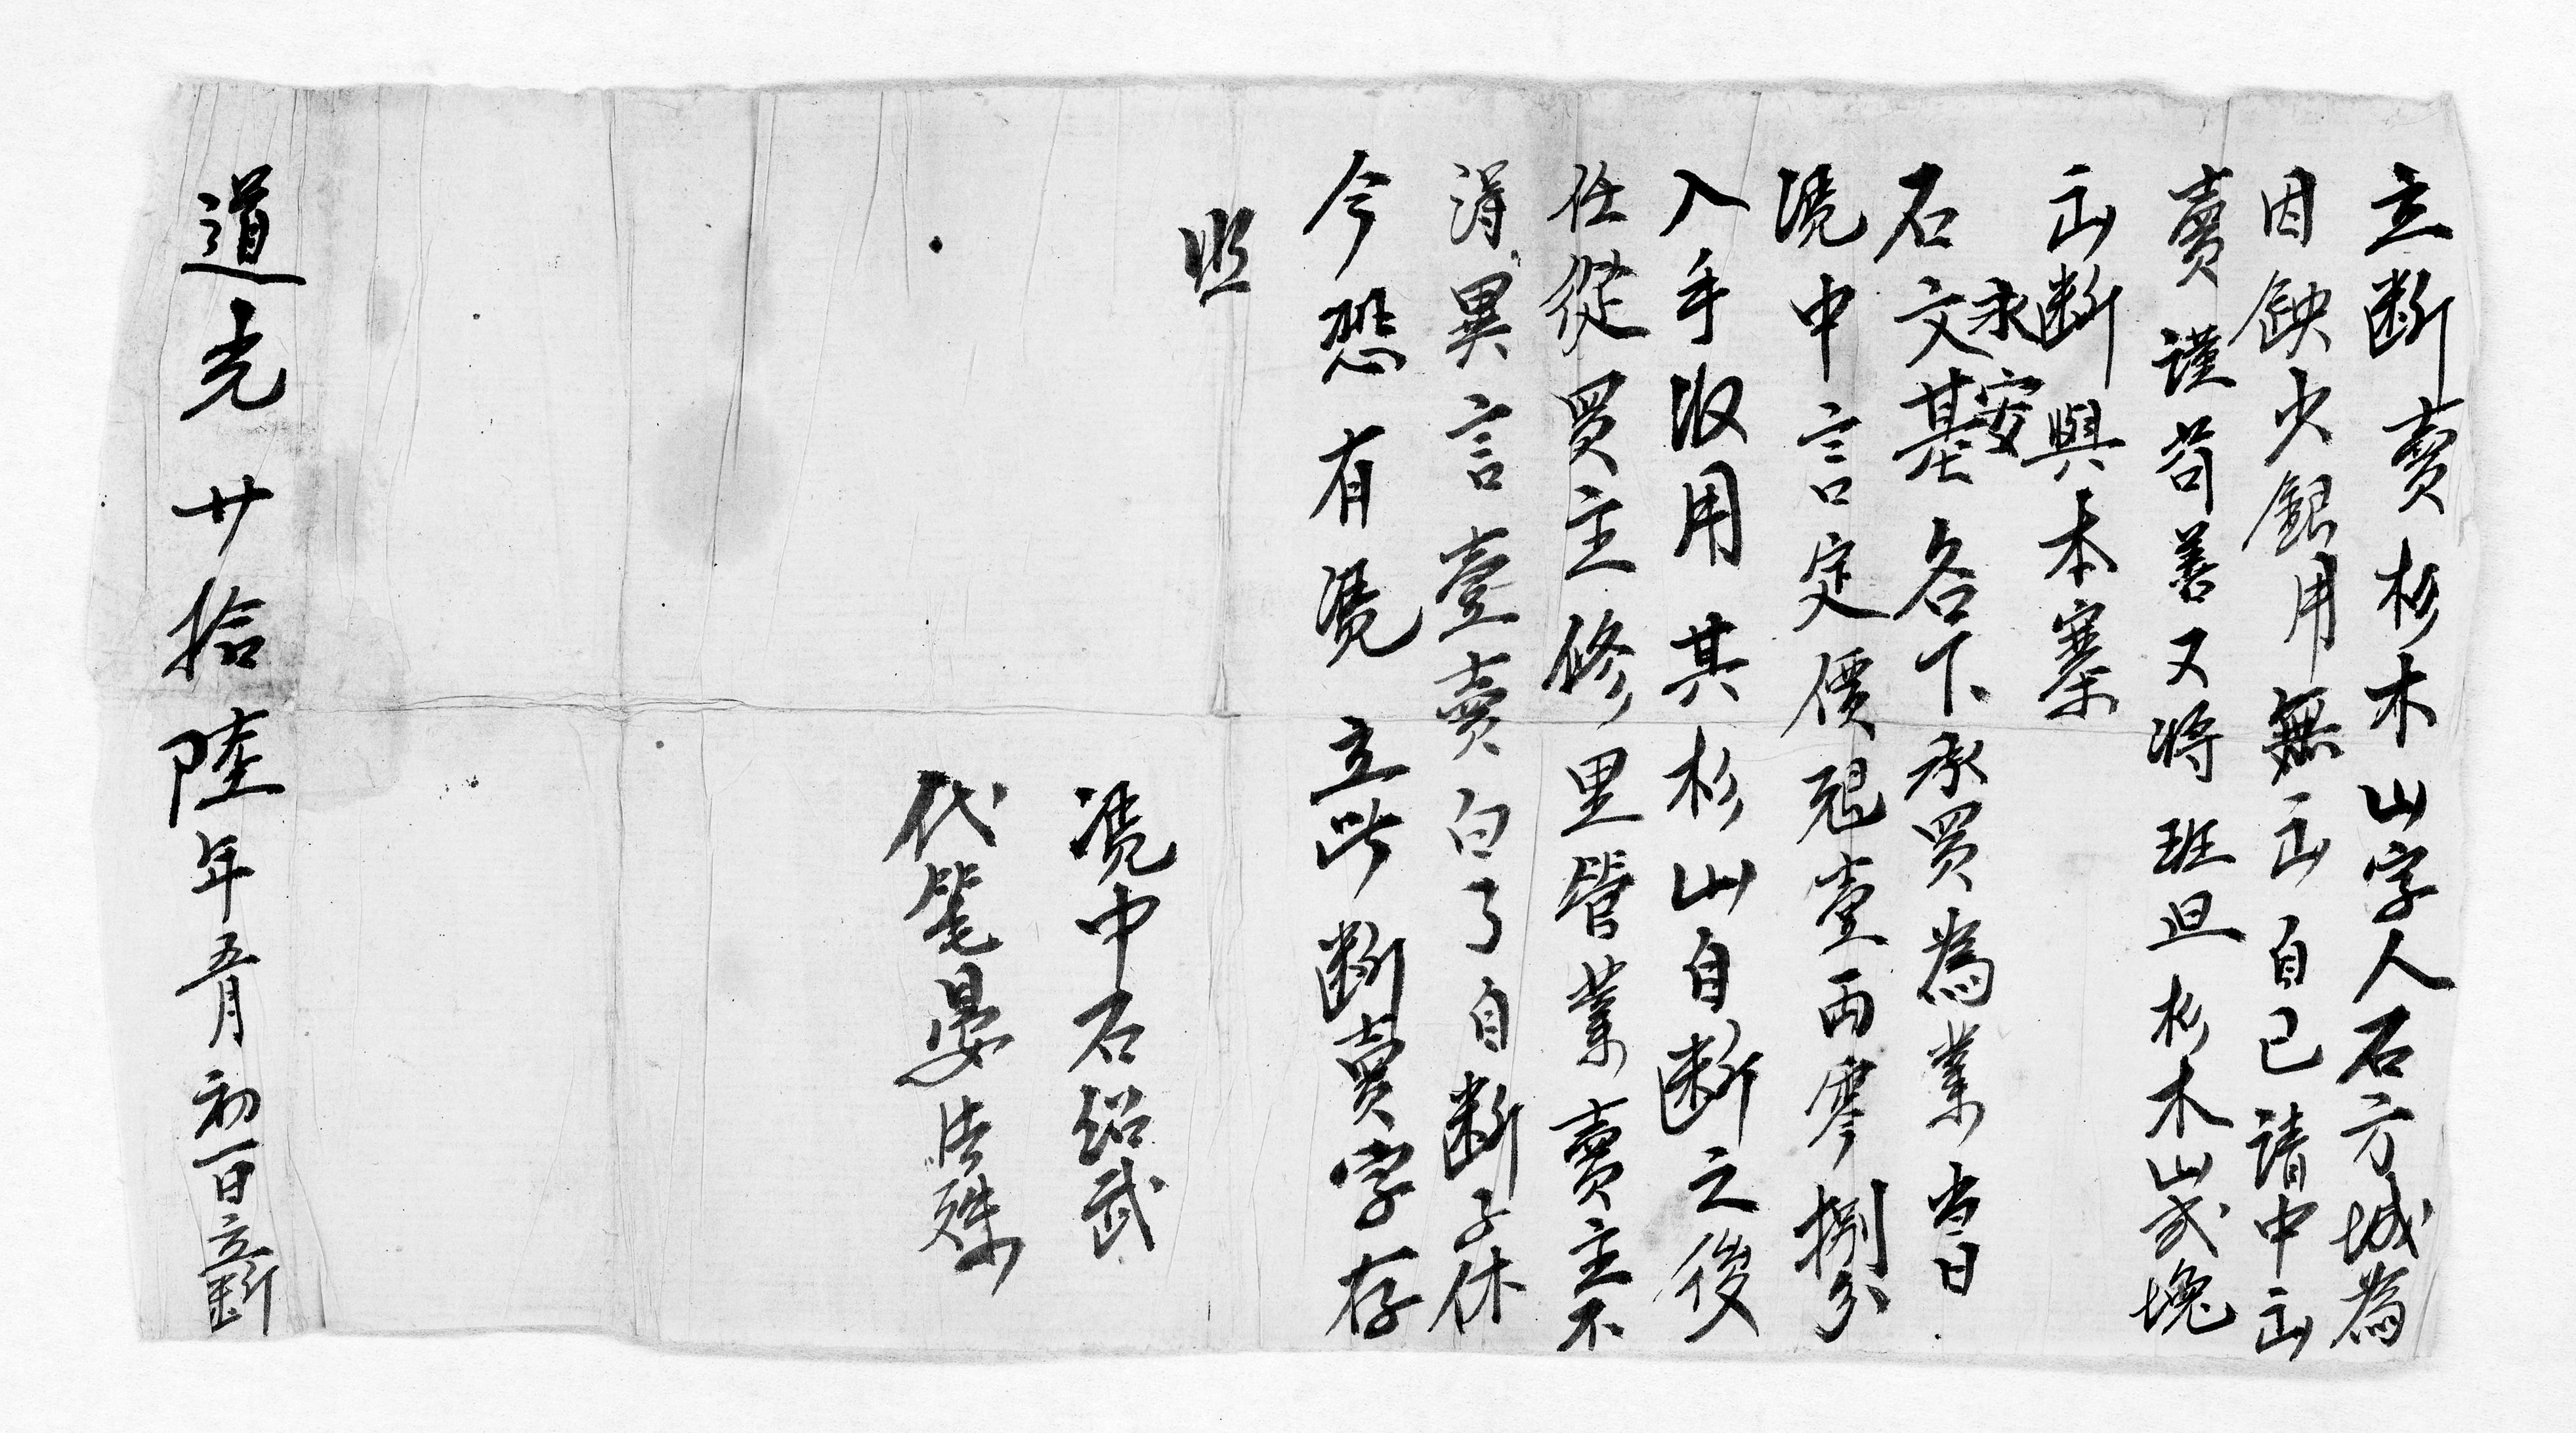 立断賣杉木山字人石方城為
因缺少銀用無出自己請中出
賣謹苟善又將班旦杉木山弍塊
出断與本寨
石文基永安名下承買為業當日
凴中言定價𥿄壹両零捌分
入手收用其杉山自断之後
任從買主修里管業賣主不
淂異言壹賣白了自断子休
今恐有凴立此断賣字存
照
凴中石绍武
代笔晏法殊
道光廿拾陸年五月初一日立断